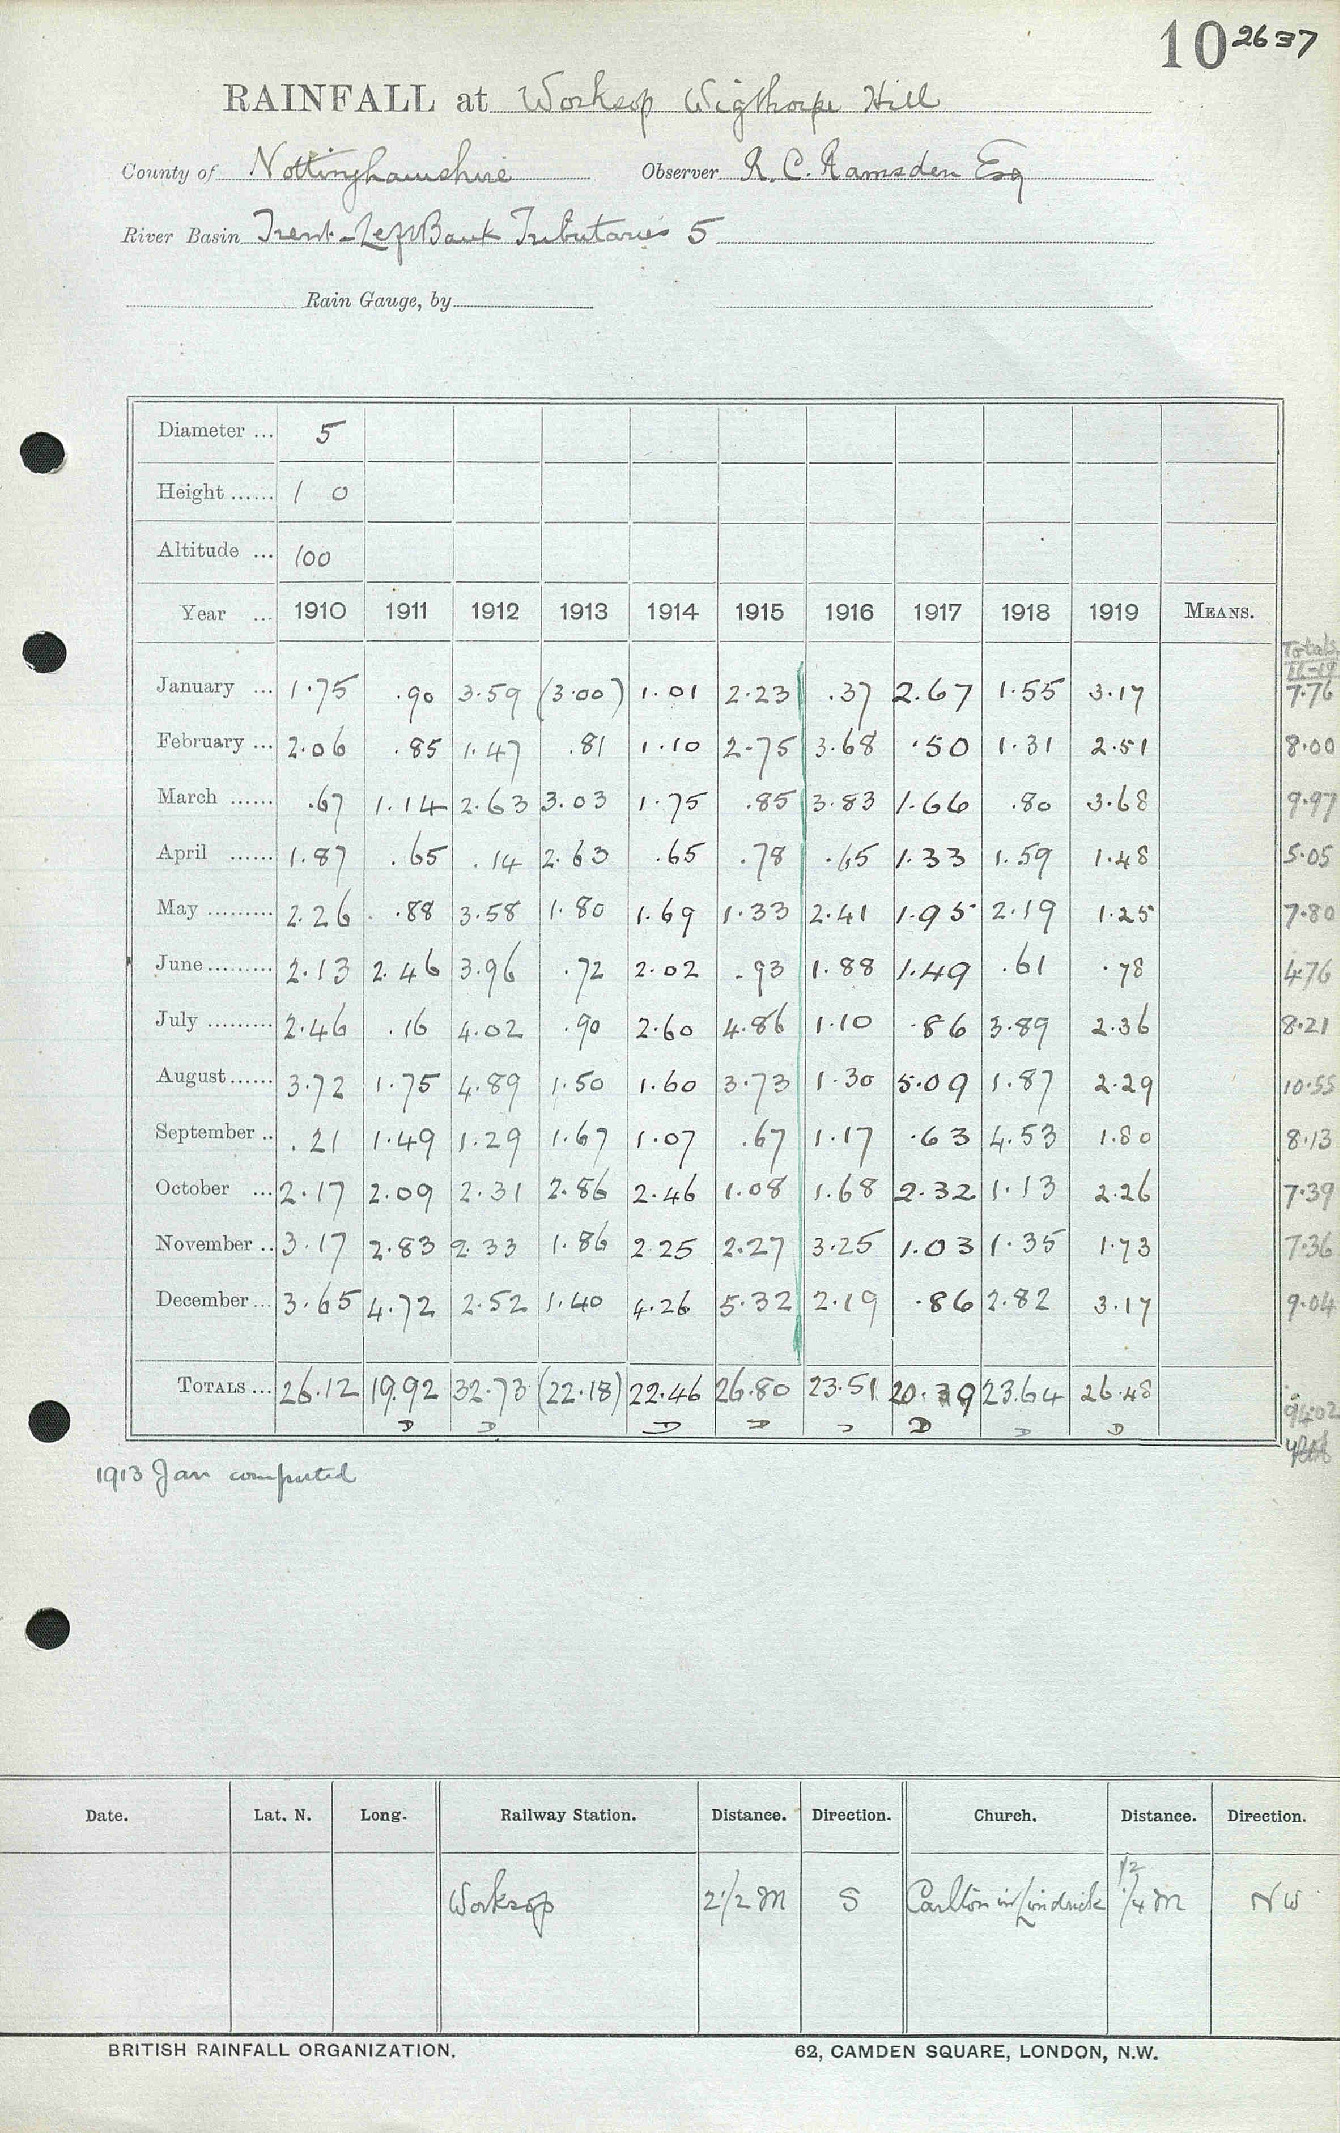 10 2637
RAINFALL at Worksop Wigthorpe Hill
County of Nottinghamshire Observer R. C. Ramsden Esq
River Basin Trent-Left Bank Tributaries 5
Rain Gauge, by
Diameter ... 5
Height ...... 1 0
Altitude ... 100
Year ... 1910 1911 1912 1913 1914 1915 1916 1917 1918 1919 MEANS.
Totals
16-19
January ... 1.75 .90 3.59 (3.00) 1.01 2.23 .37 2.67 1.55 3.17 7.76
February ... 2.06 .85 1.47 .81 1.10 2.75 3.68 .50 1.31 2.51 8.00
March ...... .67 1.14 2.63 3.03 1.75 .85 3.83 1.66 .80 3.68 9.97
April ...... 1.87 .65 .14 2.63 .65 .78 .65 1.33 1.59 1.48 5.05
May ......... 2.26 .88 3.58 1.80 1.69 1.33 2.41 1.95 2.19 1.25 7.80
June ......... 2.13 2.46 3.96 .72 2.02 .93 1.88 1.49 .61 .78 4.76
July ......... 2.46 .16 4.02 .90 2.60 4.86 1.10 .86 3.89 2.36 8.21
August ...... 3.72 1.75 4.89 1.50 1.60 3.73 1.30 5.09 1.87 2.29 10.55
September .. .21 1.49 1.29 1.67 1.07 .67 1.17 .63 4.53 1.80 8.13
October ... 2.17 2.09 2.31 2.86 2.46 1.08 1.68 2.32 1.13 2.26 7.39
November .. 3.17 2.83 2.33 1.86 2.25 2.27 3.25 1.03 1.35 1.73 7.36
December ... 3.65 4.72 2.52 1.40 4.26 5.32 2.19 .86 2.82 3.17 9.04
TOTALS ... 26.12 19.92 32.73 (22.18) 22.46 26.80 23.51 20.39 23.64 26.48 94.02
D D D D D D D D
1913 Jan computed
Date. Lat. N. Long. Railway Station. Distance. Direction. Church. Distance. Direction.
1/2
Worksop 2 1/2 M S Carlton in Lindrick 1/4 M NW
BRITISH RAINFALL ORGANIZATION. 62, CAMDEN SQUARE, LONDON, N.W.